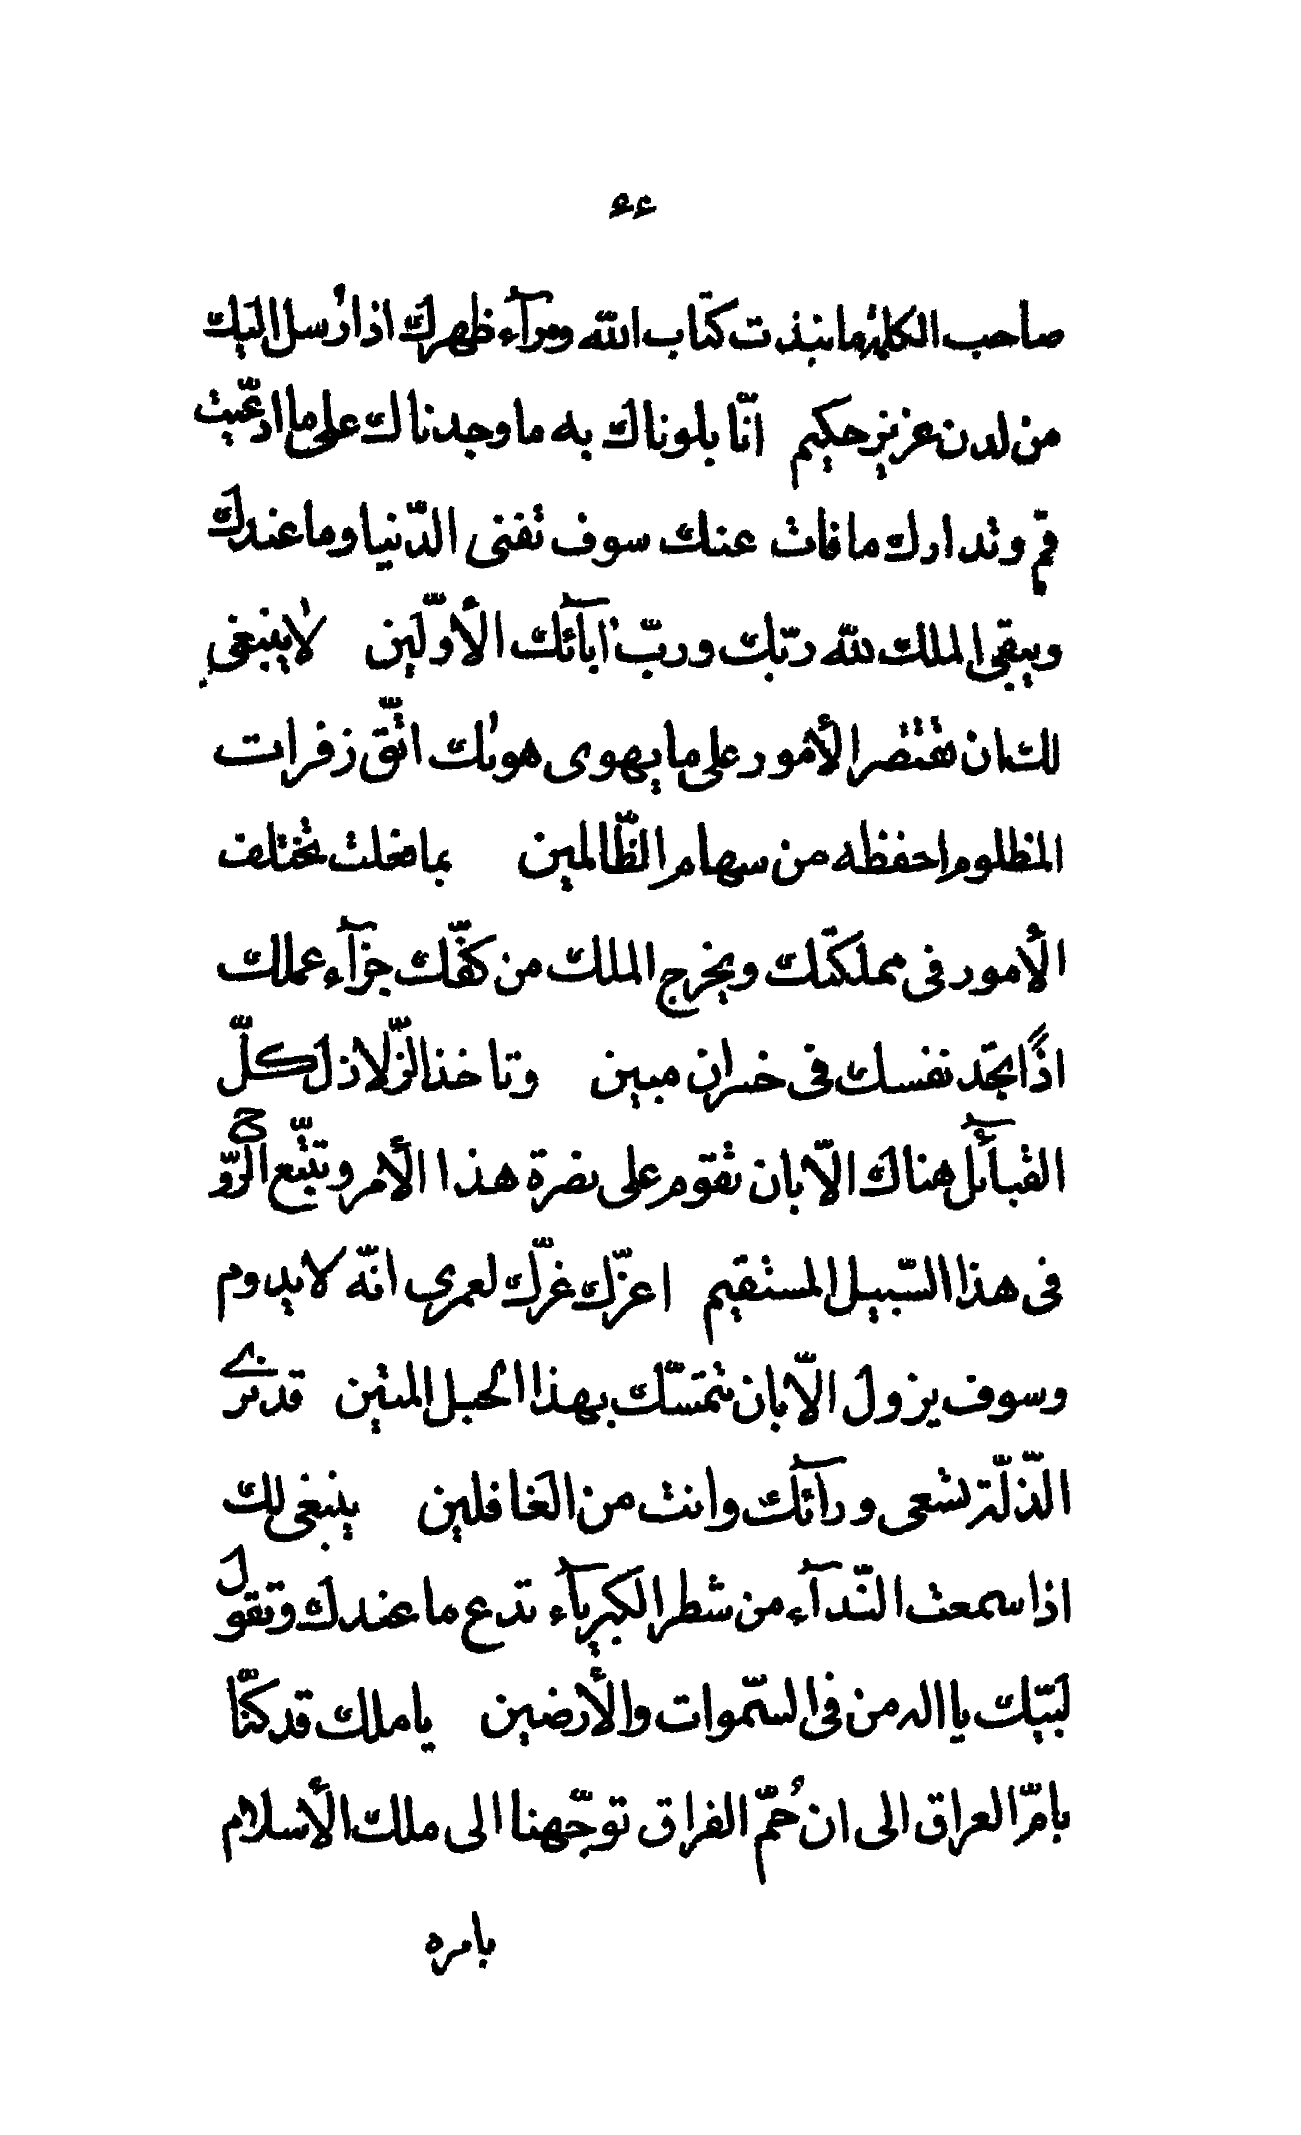 ٤٩
صاحب الكلمة ما نبذت كتاب الله ورآء ظهرك اذا رُسل اليك
من لدن عزيز حكيم انّا بلوناك به ما وجدناك على ما ادّعيت
قم وتدارك ما فات عنك سوف تفنى الدّنيا وما عندك
ويبقى الملك لله ربّك وربّ ابآئك الأوّلين لا ينبغى
لك ان تقتصر الأمور على ما يهوى هويٰك اتّق زفرات
المظلوم احفظه من سهام الظّالمين بما فعلت تختلف
الأمور فى مملكتك ويخرج الملك من كفّك جزآء عملك
اذًا تجد نفسك فى خسران مبين وتاخذ الزّلازل كلّ
القبآئل هناك الّا بان تقوم على نصرة هذا الأمر وتتّبع الرّوح
فى هذا السّبيل المستقيم اعزّك غرّك لعمرى انّه لا يدوم
وسوف يزول الّا بان تتمسّك بهذا الحبل المتين قد نرى
الذّلّة تسعى ورآئك وانت من الغافلين ينبغى لك
اذا سمعت النّدآء من شطر الكبريآء تدع ما عندك وتقول
لبّيك يا اله من فى السّموات والأرضين يا ملك قد كنّا
بامّ العراق الى ان حُمّ الفراق توجّهنا الى ملك الأسلام
بامره